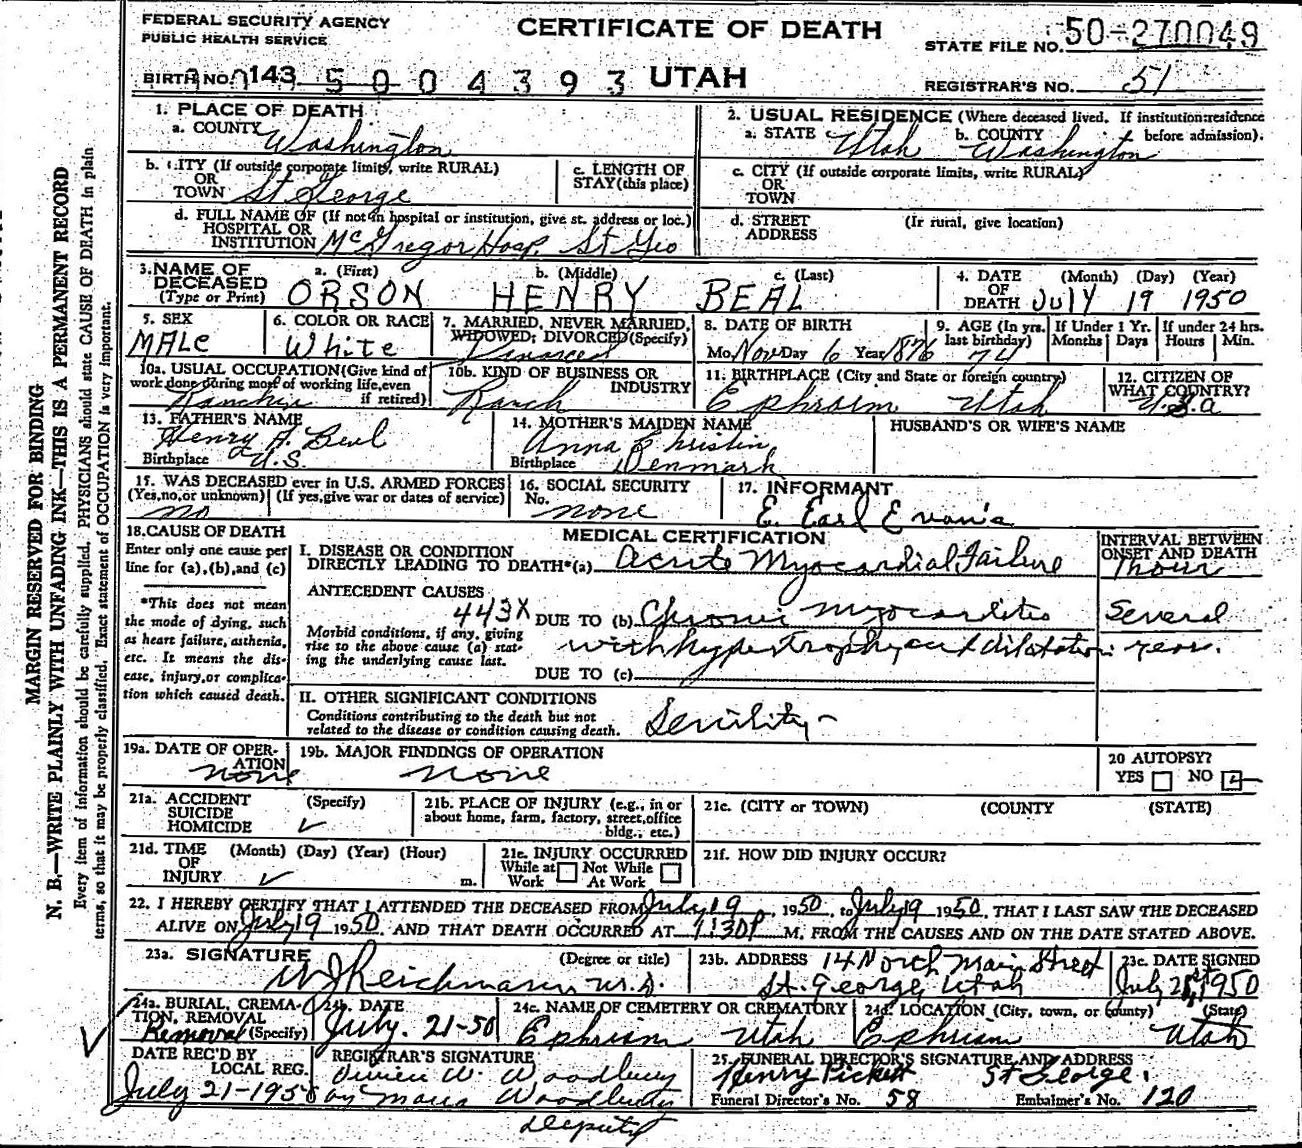 FEDERAL SECURITY AGENCY
PUBLIC HEALTH SERVICE
CERTIFICATE OF DEATH
STATE FILE NO. 50-270049
BIRTH NO. 143 5004393 UTAH
REGISTRAR'S NO. 51
1. PLACE OF DEATH
a. COUNTY Washington
2. USUAL RESIDENCE (Where deceased lived. If institution: residence before admission).
a. STATE Utah b. COUNTY Washington
b. CITY (If outside corporate limits, write RURAL) OR TOWN St George
c. LENGTH OF STAY (this place)
c. CITY (If outside corporate limits, write RURAL) OR TOWN
d. FULL NAME OF (If not in hospital or institution, give st. address or loc.) HOSPITAL OR INSTITUTION McGregor Hosp. St Geo
d. STREET ADDRESS (If rural, give location)
3. NAME OF DECEASED (Type or Print)
a. (First) ORSON b. (Middle) HENRY c. (Last) BEAL
4. DATE OF DEATH (Month) (Day) (Year) JULY 19 1950
5. SEX MALE
6. COLOR OR RACE White
7. MARRIED, NEVER MARRIED, WIDOWED, DIVORCED (Specify) Divorced
8. DATE OF BIRTH Mo. Nov Day 6 Year 1876
9. AGE (In yrs. last birthday) 74
If Under 1 Yr. Months Days
If under 24 hrs. Hours Min.
10a. USUAL OCCUPATION (Give kind of work done during most of working life, even if retired) Rancher
10b. KIND OF BUSINESS OR INDUSTRY Ranch
11. BIRTHPLACE (City and State or foreign country) Ephraim Utah
12. CITIZEN OF WHAT COUNTRY? U.S.a
13. FATHER'S NAME Henry A. Beal
Birthplace U.S.
14. MOTHER'S MAIDEN NAME Anna Christin
Birthplace Denmark
HUSBAND'S OR WIFE'S NAME
15. WAS DECEASED ever in U.S. ARMED FORCES (Yes, no, or unknown) (If yes, give war or dates of service) no
16. SOCIAL SECURITY No. none
17. INFORMANT E. Earl Evans
18. CAUSE OF DEATH
Enter only one cause per line for (a), (b), and (c)
*This does not mean the mode of dying, such as heart failure, asthenia, etc. It means the disease, injury, or complication which caused death.
MEDICAL CERTIFICATION
INTERVAL BETWEEN ONSET AND DEATH
I. DISEASE OR CONDITION DIRECTLY LEADING TO DEATH*(a) Acute Myocardial Failure 1 hour
ANTECEDENT CAUSES
443X
Morbid conditions, if any, giving rise to the above cause (a) stating the underlying cause last.
DUE TO (b) Chronic myocarditis Several
with hypertrophy and dilatation years.
DUE TO (c)
II. OTHER SIGNIFICANT CONDITIONS
Conditions contributing to the death but not related to the disease or condition causing death. Senility
19a. DATE OF OPERATION none
19b. MAJOR FINDINGS OF OPERATION none
20 AUTOPSY? YES NO
21a. ACCIDENT SUICIDE HOMICIDE (Specify) ✓
21b. PLACE OF INJURY (e.g., in or about home, farm, factory, street, office bldg., etc.)
21c. (CITY or TOWN) (COUNTY) (STATE)
21d. TIME OF INJURY (Month) (Day) (Year) (Hour) ✓ m.
21e. INJURY OCCURRED While at Work Not While At Work
21f. HOW DID INJURY OCCUR?
22. I HEREBY CERTIFY THAT I ATTENDED THE DECEASED FROM July 19, 1950, to July 19 1950, THAT I LAST SAW THE DECEASED
ALIVE ON July 19 1950. AND THAT DEATH OCCURRED AT 1:30P M. FROM THE CAUSES AND ON THE DATE STATED ABOVE.
23a. SIGNATURE (Degree or title) W J Reichmann M.D.
23b. ADDRESS 14 North Main Street St. George, Utah
23c. DATE SIGNED July 21st 1950
24a. BURIAL, CREMATION, REMOVAL (Specify) Removal
24b. DATE July. 21-50
24c. NAME OF CEMETERY OR CREMATORY Ephriam Utah
24d. LOCATION (City, town, or county) (State) Ephriam Utah
DATE REC'D BY LOCAL REG. July 21-1950
REGISTRAR'S SIGNATURE W. Woodbury
by Woodbury
deputy
25. FUNERAL DIRECTOR'S SIGNATURE AND ADDRESS Henry Pickett St George.
Funeral Director's No. 58 Embalmer's No. 120
MARGIN RESERVED FOR BINDING
N. B.—WRITE PLAINLY WITH UNFADING INK—THIS IS A PERMANENT RECORD
Every item of information should be carefully supplied. PHYSICIANS should state CAUSE OF DEATH in plain
terms, so that it may be properly classified. Exact statement of OCCUPATION is very important.